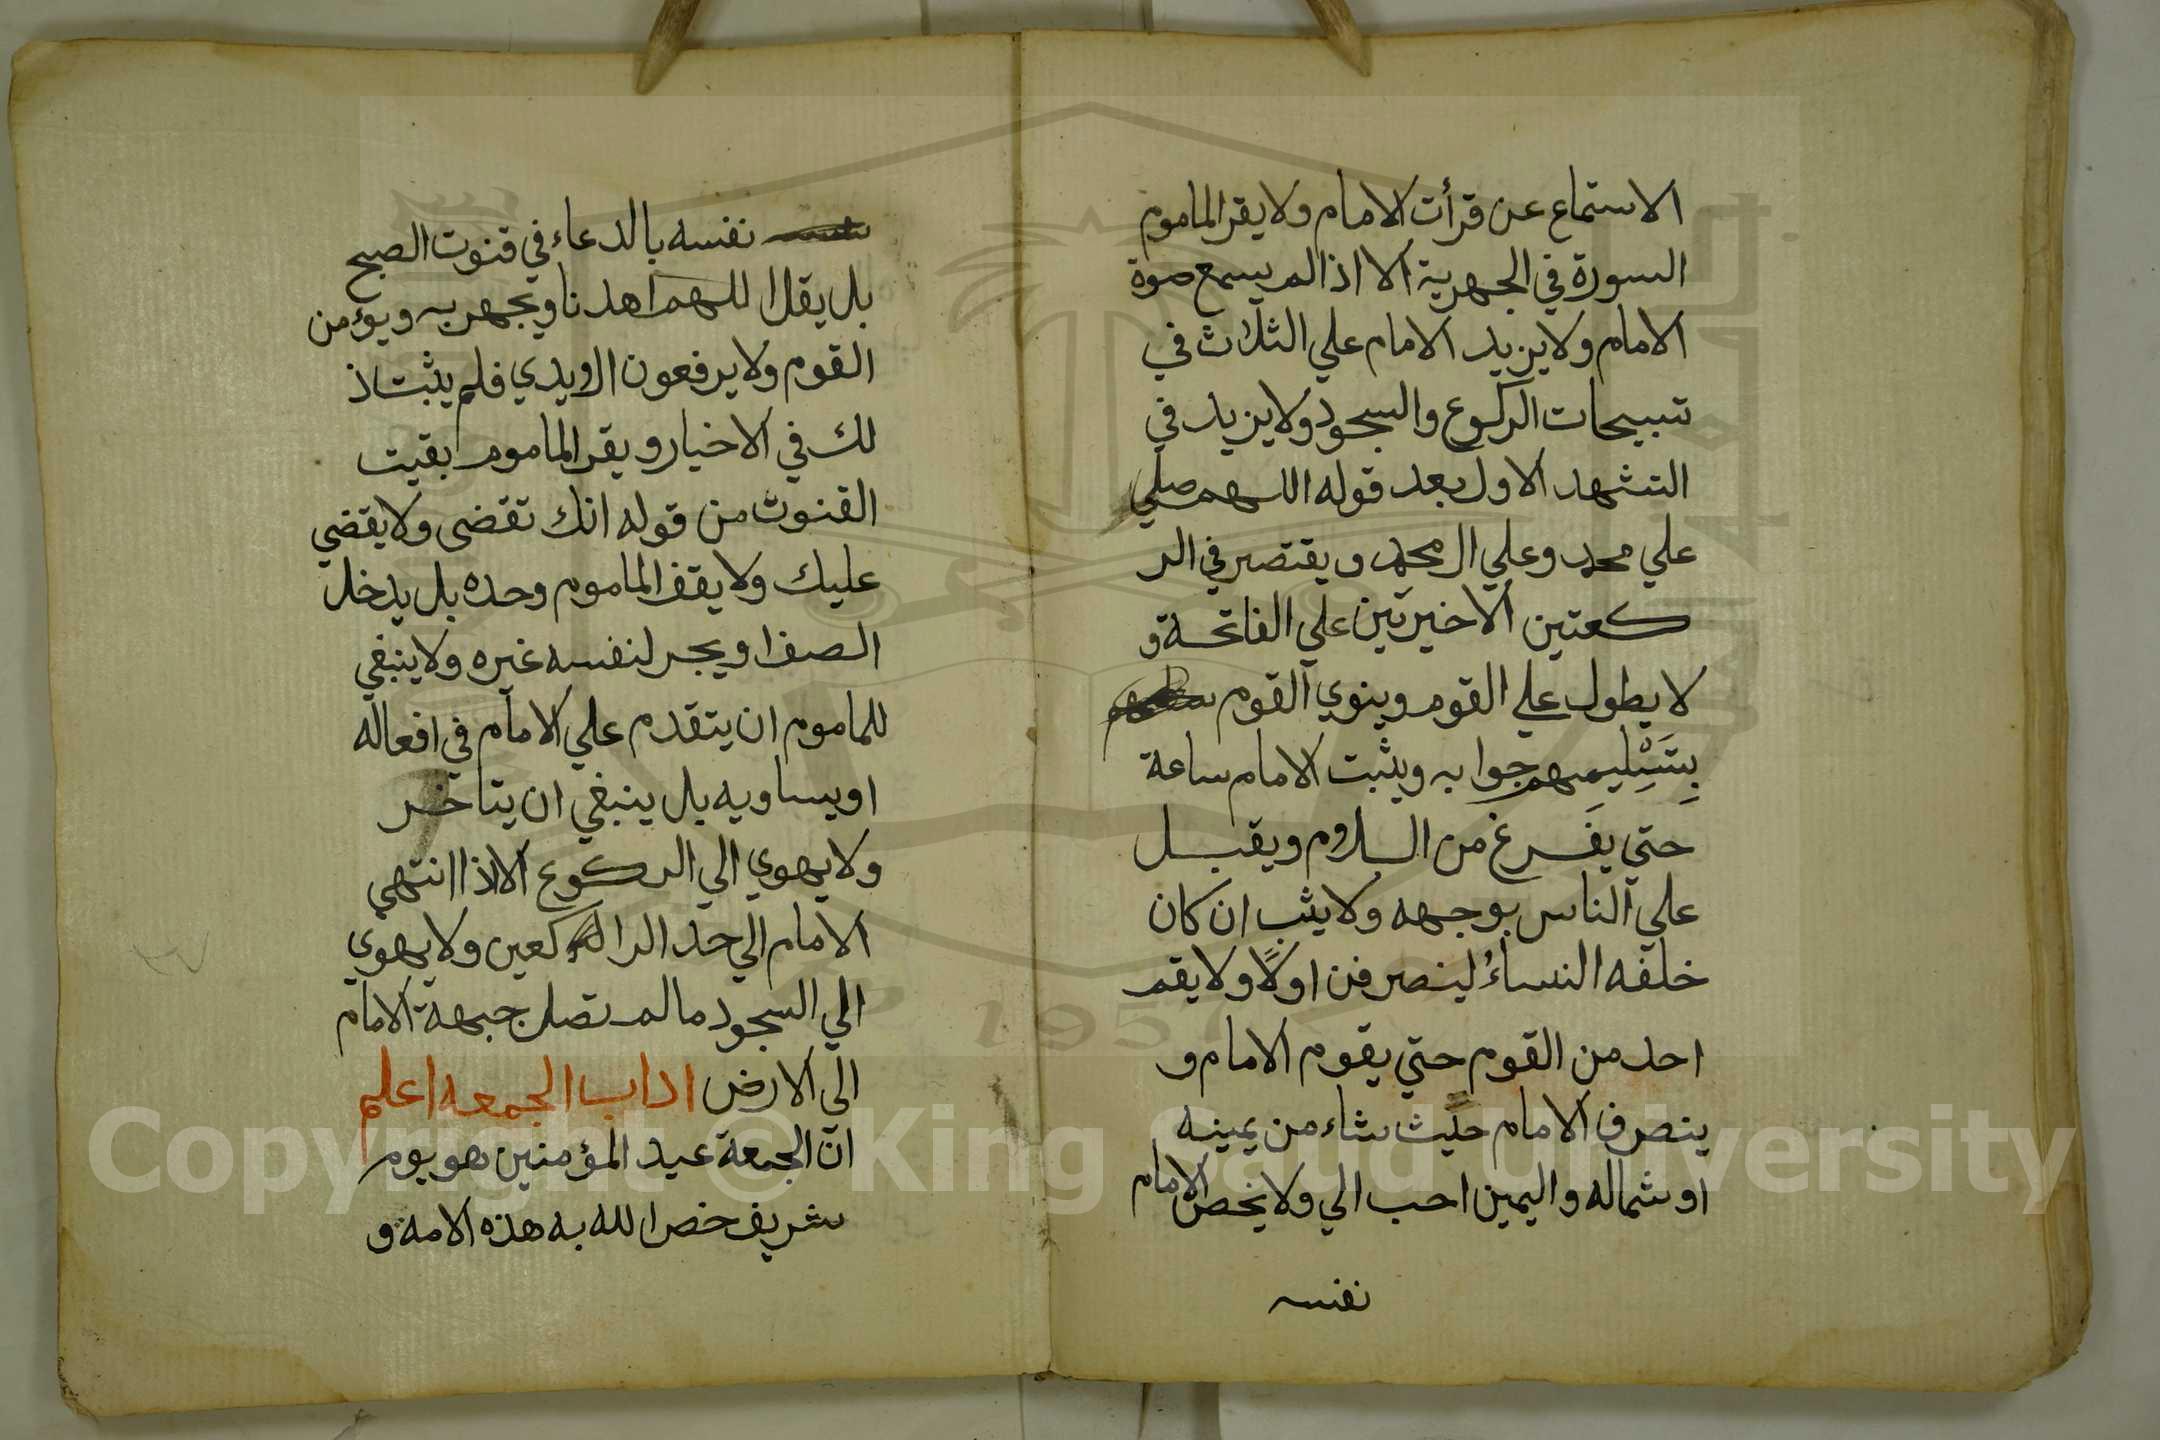 الاستماع عن قرأت الامام ولا يقر المأموم
السورة في الجهرية الا اذا لم يسمع صوة
الامام ولا يزيد الامام علي الثلاث في
تسبيحات الركوع والسجود ولا يزيد في
التشهد الاول بعد قوله اللهم صلي
علي محمد وعلي ال محمد ويقتصر في الر
كعتين الاخيرتين علي الفاتحة و
لا يطول علي القوم وينوي القوم
بِتَسْلِيمهم جوابه ويثبت الامام ساعة
حتي يَفرغ من السلام ويقبل
علي الناس بوجهه ولا يثب ان كان
خلفه النساءُ لينصرفن اولًا ولا يقم
احد من القوم حتي يقوم الامام و
ينصرف الامام حيث شاء من يمينه
او شماله واليمين احب الي ولا يخص الامام
نفسه
نفسه بالدعاء في قنوت الصبح
بل يقل اللهم اهدنا ويجهر به ويؤمن
القوم ولا يرفعون الايدي فلم يثبت ذ
لك في الاخبار ويقر المأموم بقيت
القنوت من قوله انك تقضى ولا يقضي
عليك ولا يقف الماموم وحده بل يدخل
الصف او يجر لنفسه غيره ولا ينبغي
للماموم ان يتقدم علي الامام في افعاله
او يساويه بل ينبغي ان يتاخر
ولا يهوي الي الركوع الا اذا انتهي
الامام الي حد الراكعين ولا يهوي
الي السجود مالم تصل جبهة الامام
الي الارض اداب الجمعه اعلم
ان الجمعة عيد المؤمنين هو يوم
شريف خص الله به هذه الامه و
Copyright © King Saud University
1957